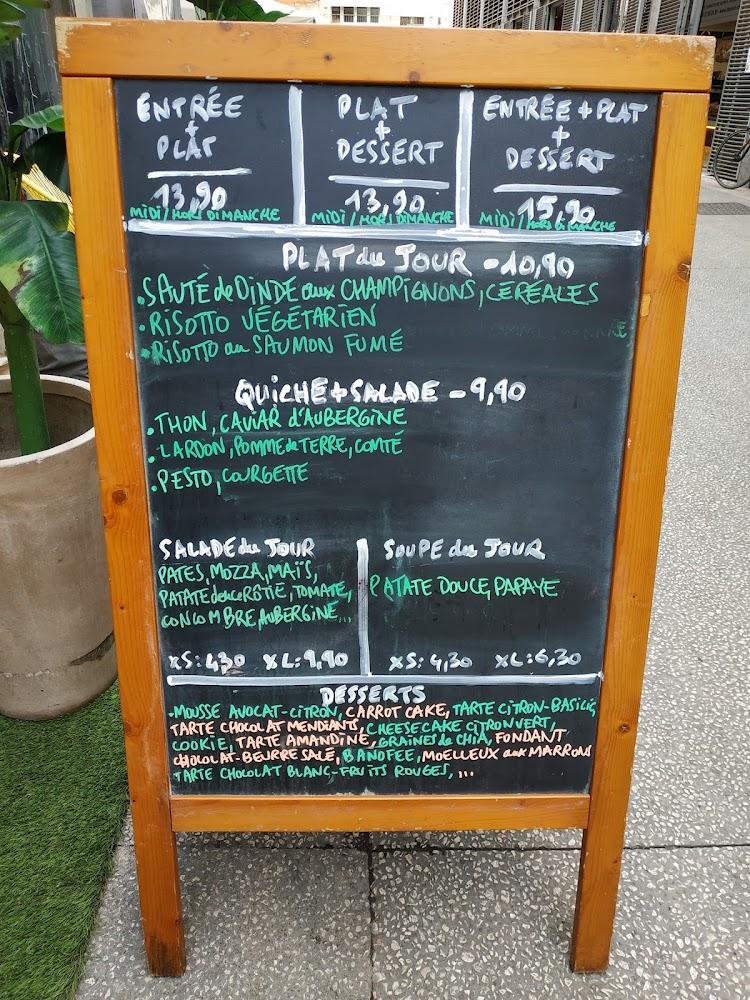 ENTRÉE
+
PLAT
13,90
MIDI / HORS DIMANCHE
PLAT
+
DESSERT
13,90
MIDI / HORS DIMANCHE
ENTRÉE + PLAT
+
DESSERT
15,90
MIDI / HORS DIMANCHE
PLAT du JOUR - 10,90
• SAUTÉ de DINDE aux CHAMPIGNONS, CÉRÉALES
• RISOTTO VÉGÉTARIEN
• RISOTTO au SAUMON FUMÉ
QUICHE + SALADE - 9,90
• THON, CAVIAR d'AUBERGINE
• LARDON, POMME de TERRE, COMTÉ
• PESTO, COURGETTE
SALADE du JOUR
PATES, MOZZA, MAÏS,
PATATE douce RÔTIE, TOMATE,
CONCOMBRE, AUBERGINE...
XS: 4,30 XL: 9,90
SOUPE du JOUR
PATATE DOUCE, PAPAYE
XS: 4,30 XL: 6,30
DESSERTS
• MOUSSE AVOCAT-CITRON, CARROT CAKE, TARTE CITRON-BASILIC,
TARTE CHOCOLAT MENDIANTS, CHEESECAKE CITRON VERT,
COOKIE, TARTE AMANDINE, GRAINES de CHIA, FONDANT
CHOCOLAT-BEURRE SALÉ, BANOFEE, MOELLEUX aux MARRONS
TARTE CHOCOLAT BLANC-FRUITS ROUGES, ...